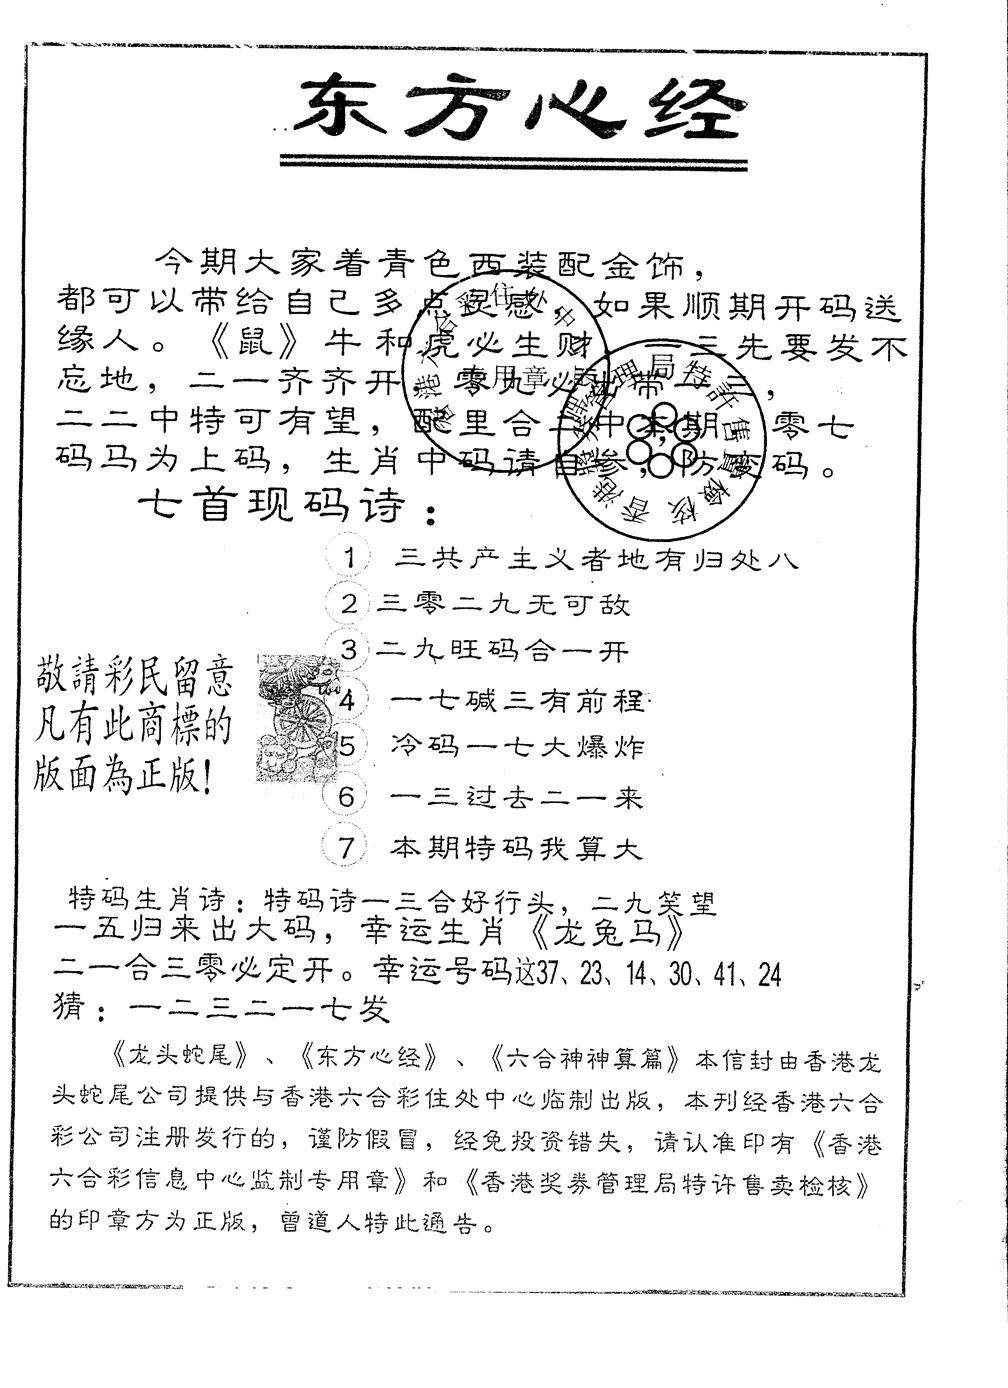 东方心经
今期大家着青色西装配金饰，
都可以带给自己多点灵感，如果顺期开码送
缘人。《鼠》牛和虎必生财，一三先要发不
忘地，二一齐齐开，零九必出带二三，
二二中特可有望，配里合二中本期，零七
码马为上码，生肖中码请自参，防变码。
七首现码诗：
1 三共产主义者地有归处八
2 三零二九无可敌
3 二九旺码合一开
敬請彩民留意
凡有此商標的
版面為正版！
4 一七碱三有前程
5 冷码一七大爆炸
6 一三过去二一来
7 本期特码我算大
特码生肖诗：特码诗一三合好行头，二九笑望
一五归来出大码，幸运生肖《龙兔马》
二一合三零必定开。幸运号码这37、23、14、30、41、24
猜：一二三二一七发
《龙头蛇尾》、《东方心经》、《六合神神算篇》本信封由香港龙
头蛇尾公司提供与香港六合彩住处中心临制出版，本刊经香港六合
彩公司注册发行的，谨防假冒，经免投资错失，请认准印有《香港
六合彩信息中心监制专用章》和《香港奖券管理局特许售卖检核》
的印章方为正版，曾道人特此通告。